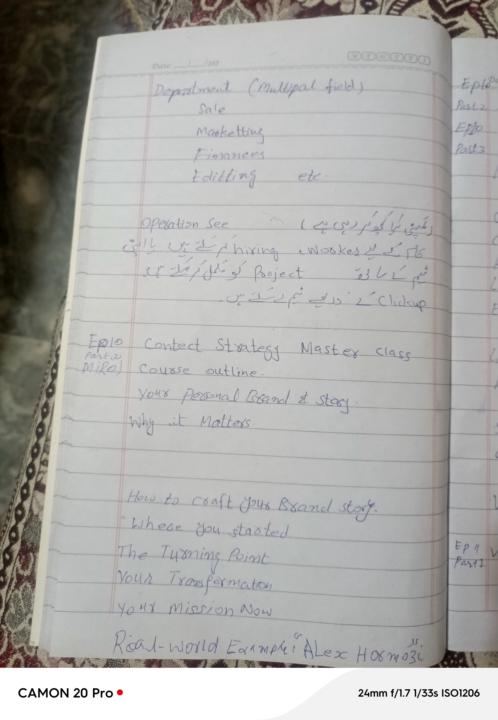 Date
Department (Multipal field)
Sale
Marketting
Finances
Editting etc.
Operation See
کام کے لیے Wookes، hiring کرتے ہیں یا اپنی
ٹیم کے ساتھ Project کو مکمل کرتے ہیں
Clickup کے ذریعے ٹیم رکھتے ہیں۔
Ep10
Part 2
Contect Strategy Master class
Course outline.
Your Personal Brand & Story.
Why it Matters
How to craft your Brand story.
Where you started
The Turning Point
Your Transformation
Your Mission Now
Real-world Example: "ALex Hormozi"
Part 2
Part 3
Ep 11
Part 1
CAMON 20 Pro
24mm f/1.7 1/33s ISO1206